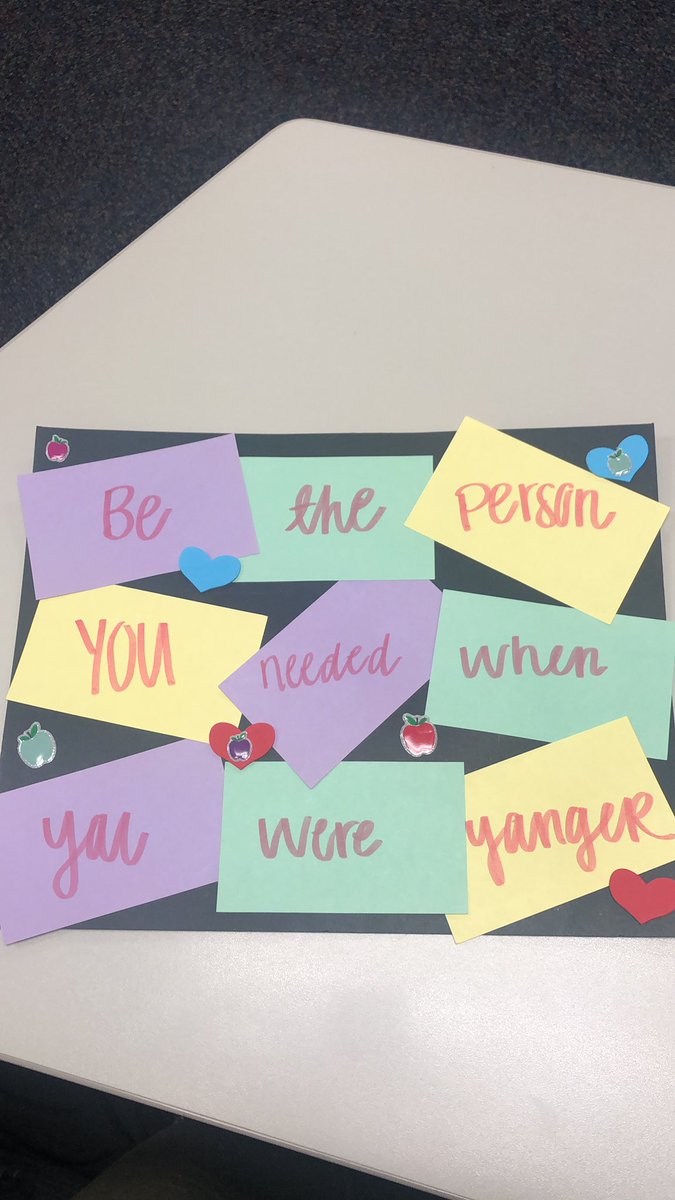 Be the person
YOU needed when
you were younger